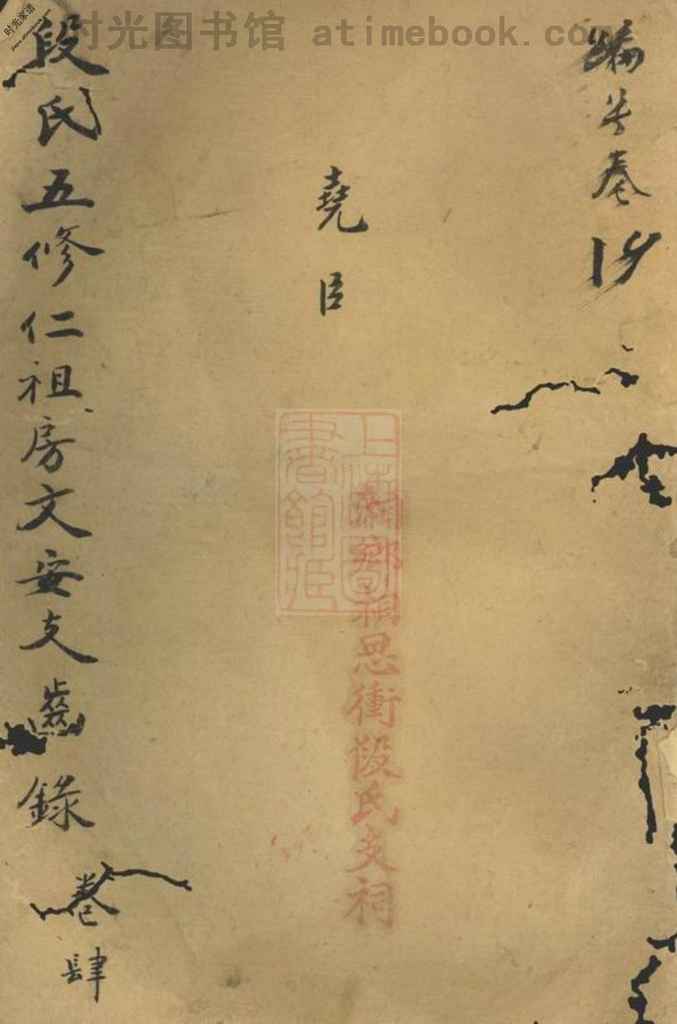 时光图书馆 atimebook.com
堯臣
上海圖書館藏
湘鄉相思衝段氏支祠
段氏五修仁祖房文安支齒錄 卷肆